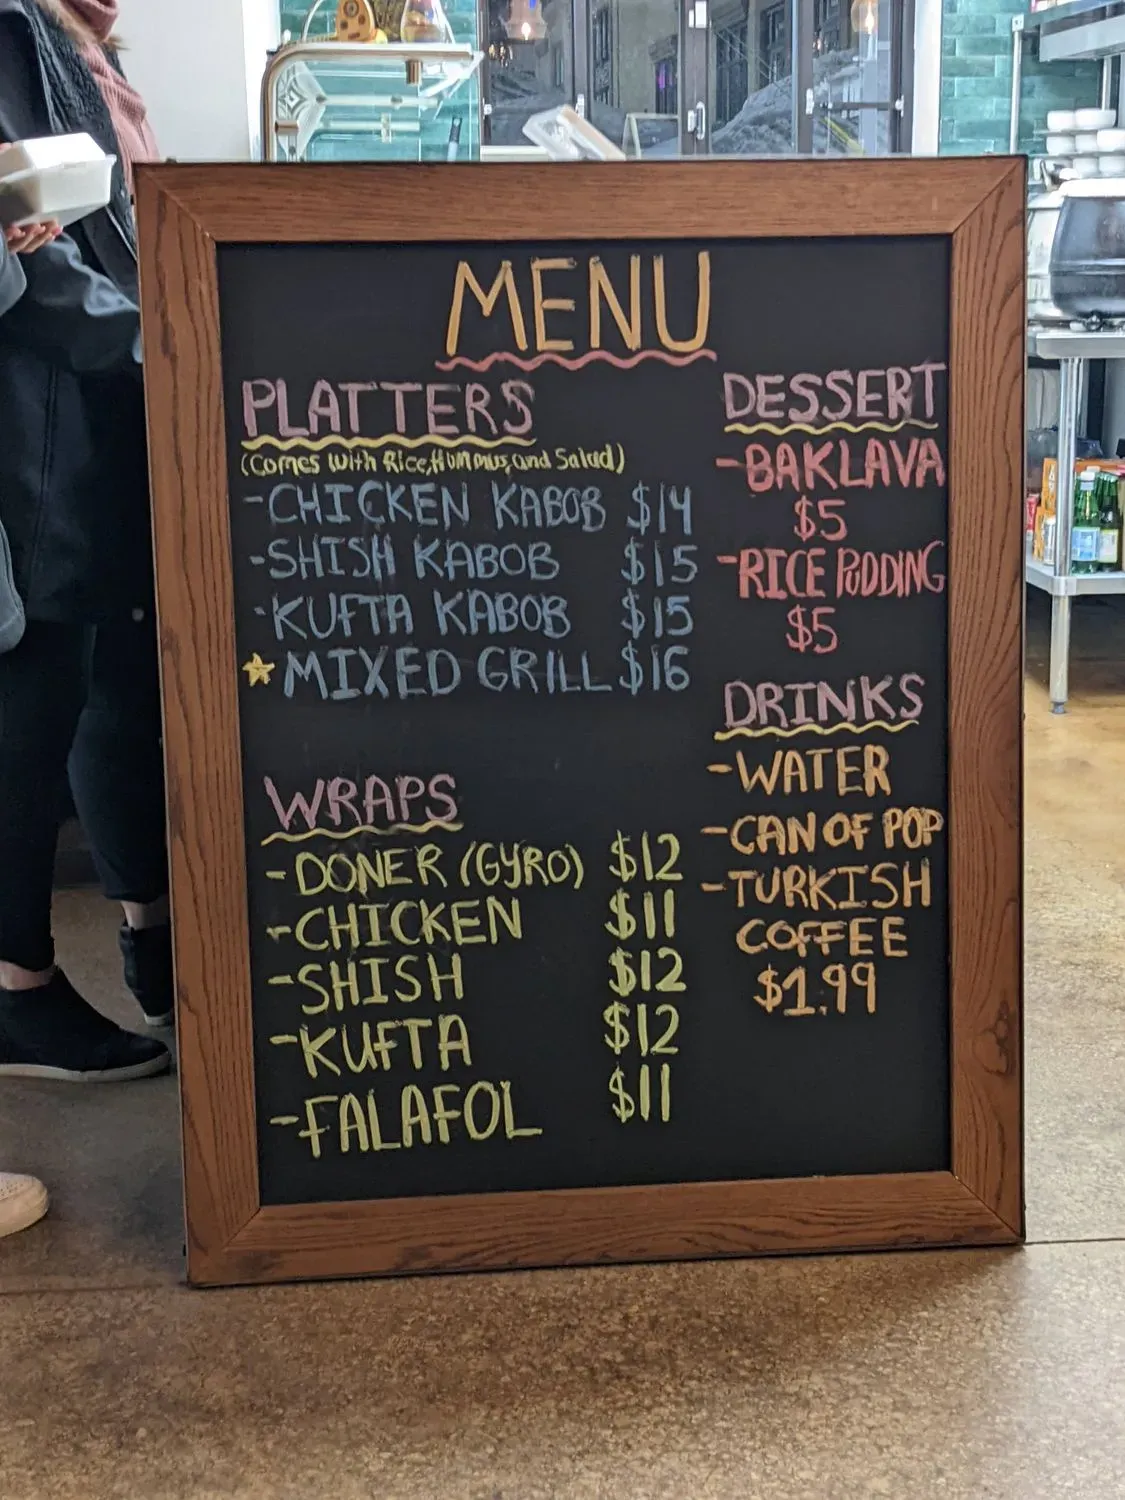 MENU
PLATTERS
(Comes with Rice, Hummus, and Salad)
-CHICKEN KABOB $14
-SHISH KABOB $15
-KUFTA KABOB $15
MIXED GRILL $16
WRAPS
-DONER (GYRO) $12
-CHICKEN $11
-SHISH $12
-KUFTA $12
-FALAFOL $11
DESSERT
-BAKLAVA
$5
-RICE PUDDING
$5
DRINKS
-WATER
-CAN OF POP
-TURKISH
COFFEE
$1.99